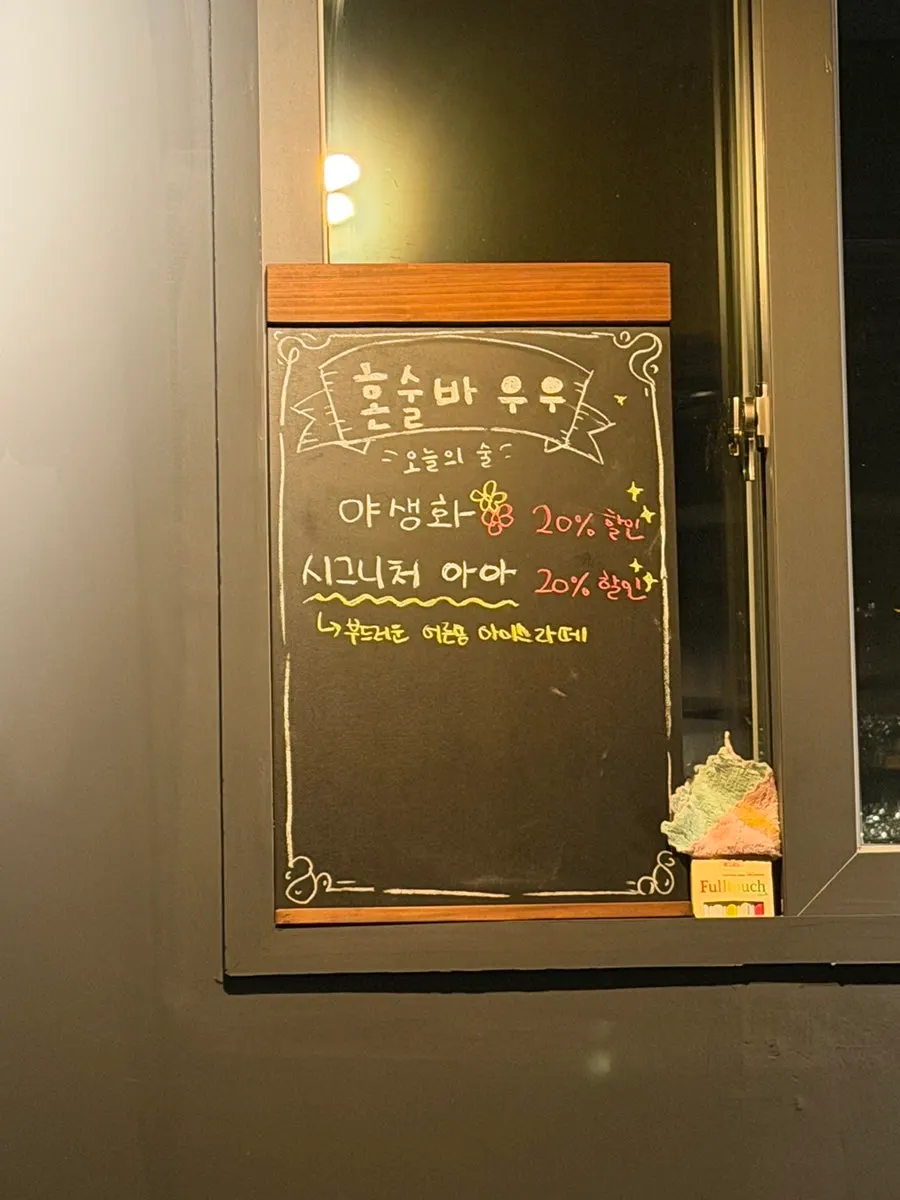 혼술바 우우
오늘의 술
야생화 20% 할인
시그니처 아아 20% 할인
↳부드러운 어른용 아이스라떼
Fulltouch